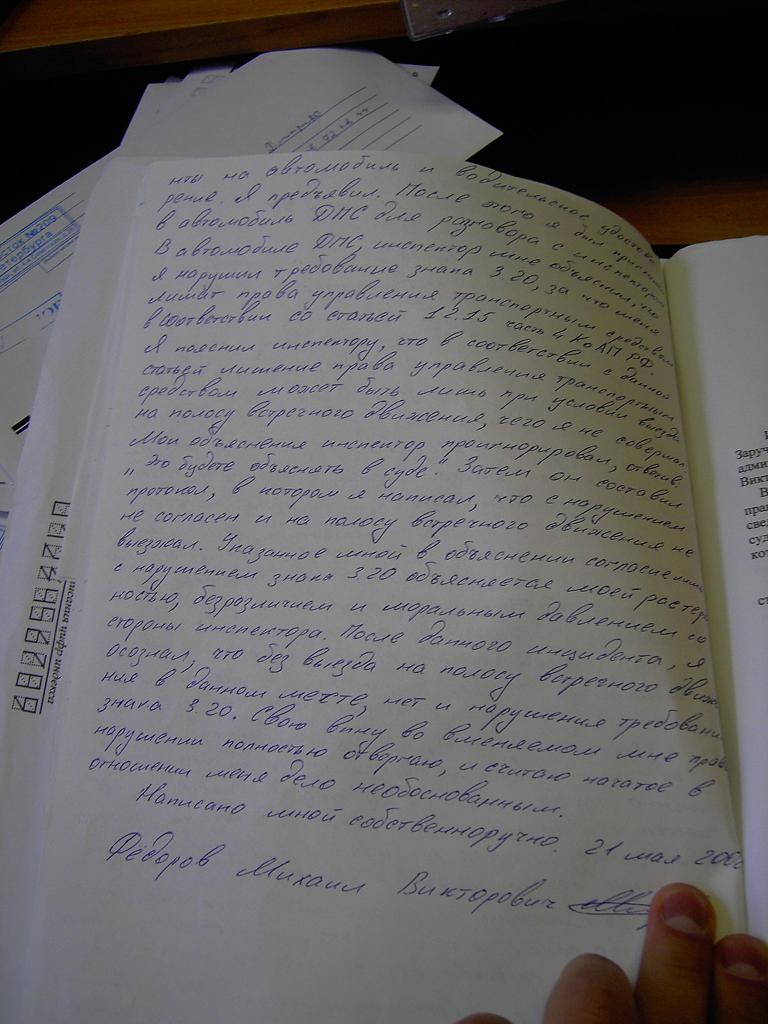 нты на автомобиль и водительское удостове
рение. Я предъявил. После этого я был пригл
в автомобиль ДПС для разговора с инспектором
В автомобиле ДПС, инспектор мне объяснил, что
я нарушил требование знака 3.20, за что меня
лишат права управления транспортным средством
в соответствии со статьей 12.15 часть 4 КоАП РФ.
Я пояснил инспектору, что в соответствии с данной
статьей лишение права управления транспортным
средством может быть лишь при условии выезда
на полосу встречного движения, чего я не совершал.
Мои объяснения инспектор проигнорировал, ответив:
"Это будете объяснять в суде". Затем он составил
протокол, в котором я написал, что с нарушением
не согласен и на полосу встречного движения не
выезжал. Указанное мной в объяснении согласие
с нарушением знака 3.20 объясняется моей растеря
ностью, безразличием и моральным давлением со
стороны инспектора. После данного инцидента, я
осознал, что без выезда на полосу встречного движе
ния в данном месте, нет и нарушения требовани
знака 3.20. Свою вину во вменяемом мне прав
нарушении полностью отвергаю, и считаю начатое в
отношении меня дело необоснованным.
Написано мной собственноручно. 21 мая
Фёдоров Михаил Викторович
сток №209
етербурга
писания цифр индекса
Заруч
адми
Викт
В
пра
све
суд
кот
ст